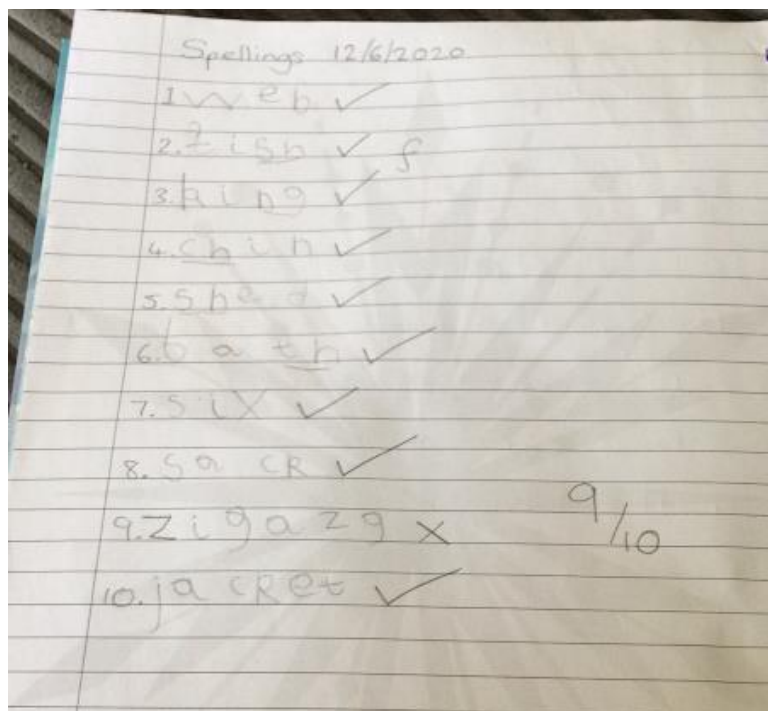 Spellings 12/6/2020
1. web ✓
2. fish ✓ f
3. king ✓
4. chin ✓
5. shed ✓
6. bath ✓
7. six ✓
8. sack ✓
9. zigazg x
9/10
10. jacket ✓